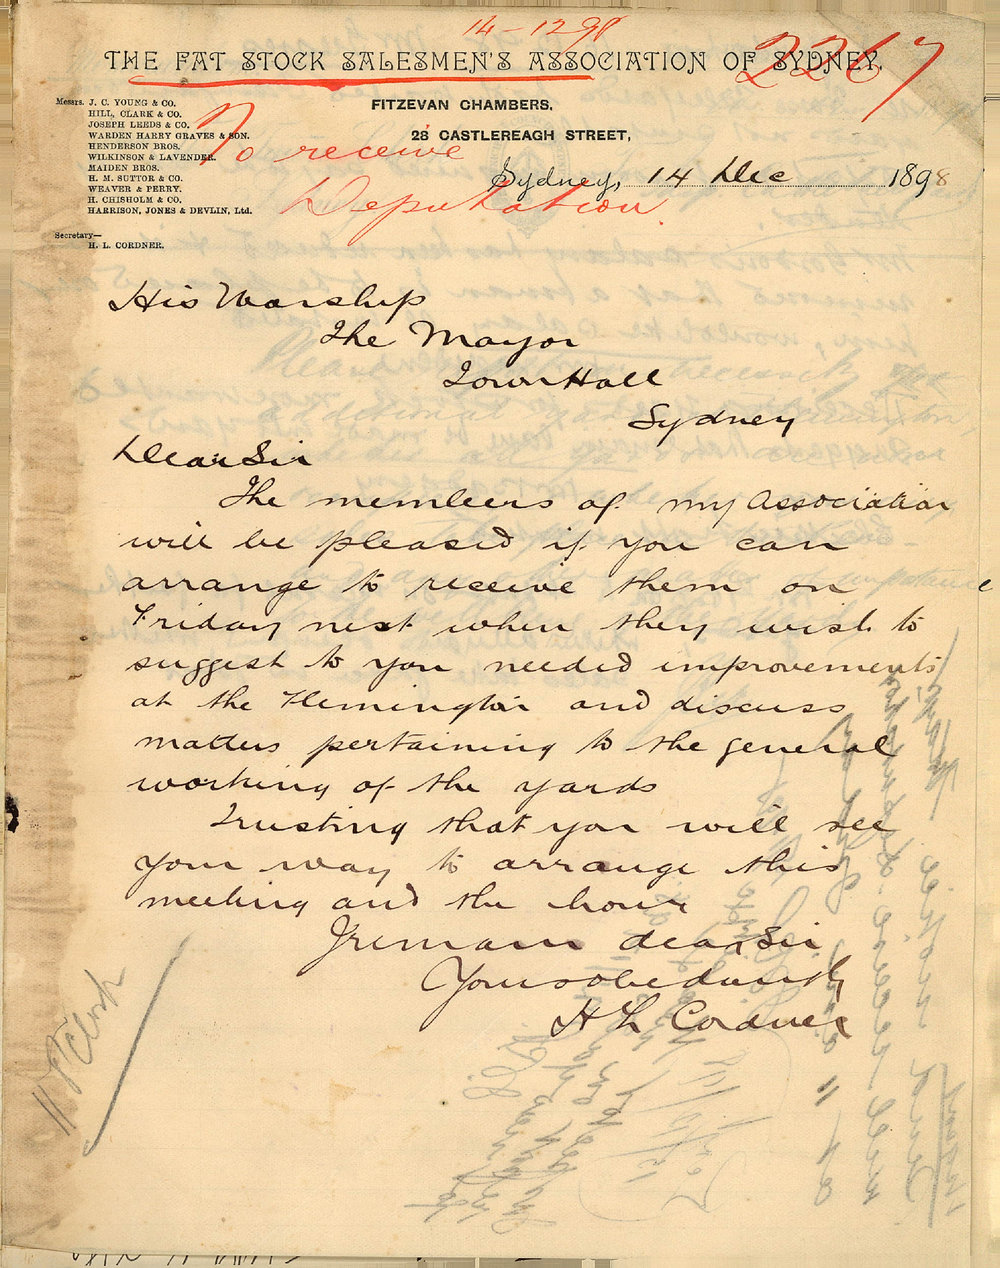 14-12-98
2267
THE FAT STOCK SALESMEN'S ASSOCIATION OF SYDNEY.
FITZEVAN CHAMBERS.
28 CASTLEREAGH STREET,
Messrs. J. C. YOUNG & CO.
HILL, CLARK & CO.
JOSEPH LEEDS & CO.
WARDEN HARRY GRAVES & SON.
HENDERSON BROS.
WILKINSON & LAVENDER.
MAIDEN BROS.
H. M. SUTTOR & CO.
WEAVER & PERRY.
H. CHISHOLM & CO.
HARRISON, JONES & DEVLIN, Ltd.
Secretary—
H. L. CORDNER.
To receive
Deputation.
Sydney, 14 Dec 1898
His Worship
The Mayor
Town Hall
Sydney
Dear Sir
The members of my Association
will be pleased if you can
arrange to receive them on
Friday next when they wish to
suggest to you needed improvements
at the Flemington and discuss
matters pertaining to the general
working of the yards
Trusting that you will see
your way to arrange this
meeting and the hour
I remain dear Sir
Yours obediently
H L Cordner
11